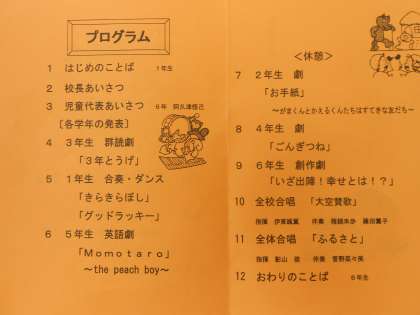 プログラム
1 はじめのことば 1年生
2 校長あいさつ
3 児童代表あいさつ 6年
〔各学年の発表〕
4 3年生 群読劇
「3年とうげ」
5 1年生 合奏・ダンス
「きらきらぼし」
「グッドラッキー」
6 5年生 英語劇
「Momotaro」
～the peach boy～
＜休憩＞
7 2年生 劇
「お手紙」
～がまくんとかえるくんたちはすてきな友だち～
8 4年生 劇
「ごんぎつね」
9 6年生 創作劇
「いざ出陣！幸せとは！？」
10 全校合唱 「大空賛歌」
指揮 伴奏
11 全体合唱 「ふるさと」
指揮 影山 伴奏 菅野菜々美
12 おわりのことば 6年生